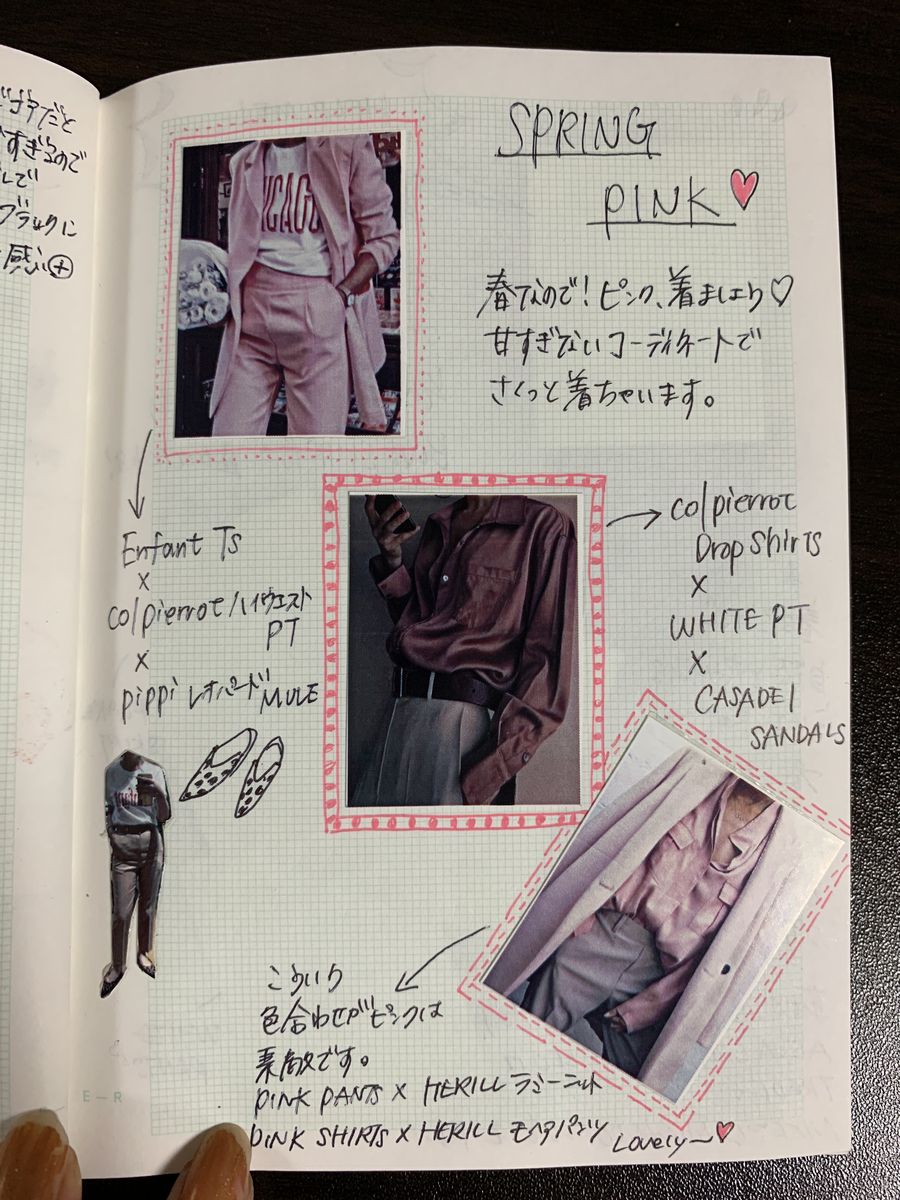 ゴアだと
すぎるので
して
ブラックに
感い⊕
SPRING
PINK
春なので！ピンク、着ましょう♡
甘すぎないコーディネートで
さくっと着ちゃいます。
ICAGO
Enfant Ts
×
co/pierrot ハイウエスト
PT
×
pippi レオパード MULE
co/pierrot
Drop Shirts
×
WHITE PT
×
CASADEI
SANDALS
こういう
色合わせがピンクは
素敵です。
PINK PANTS × HERILL ラミーニット
PINK SHIRTS × HERILL モヘアパンツ
Lovely〜♡
E–R